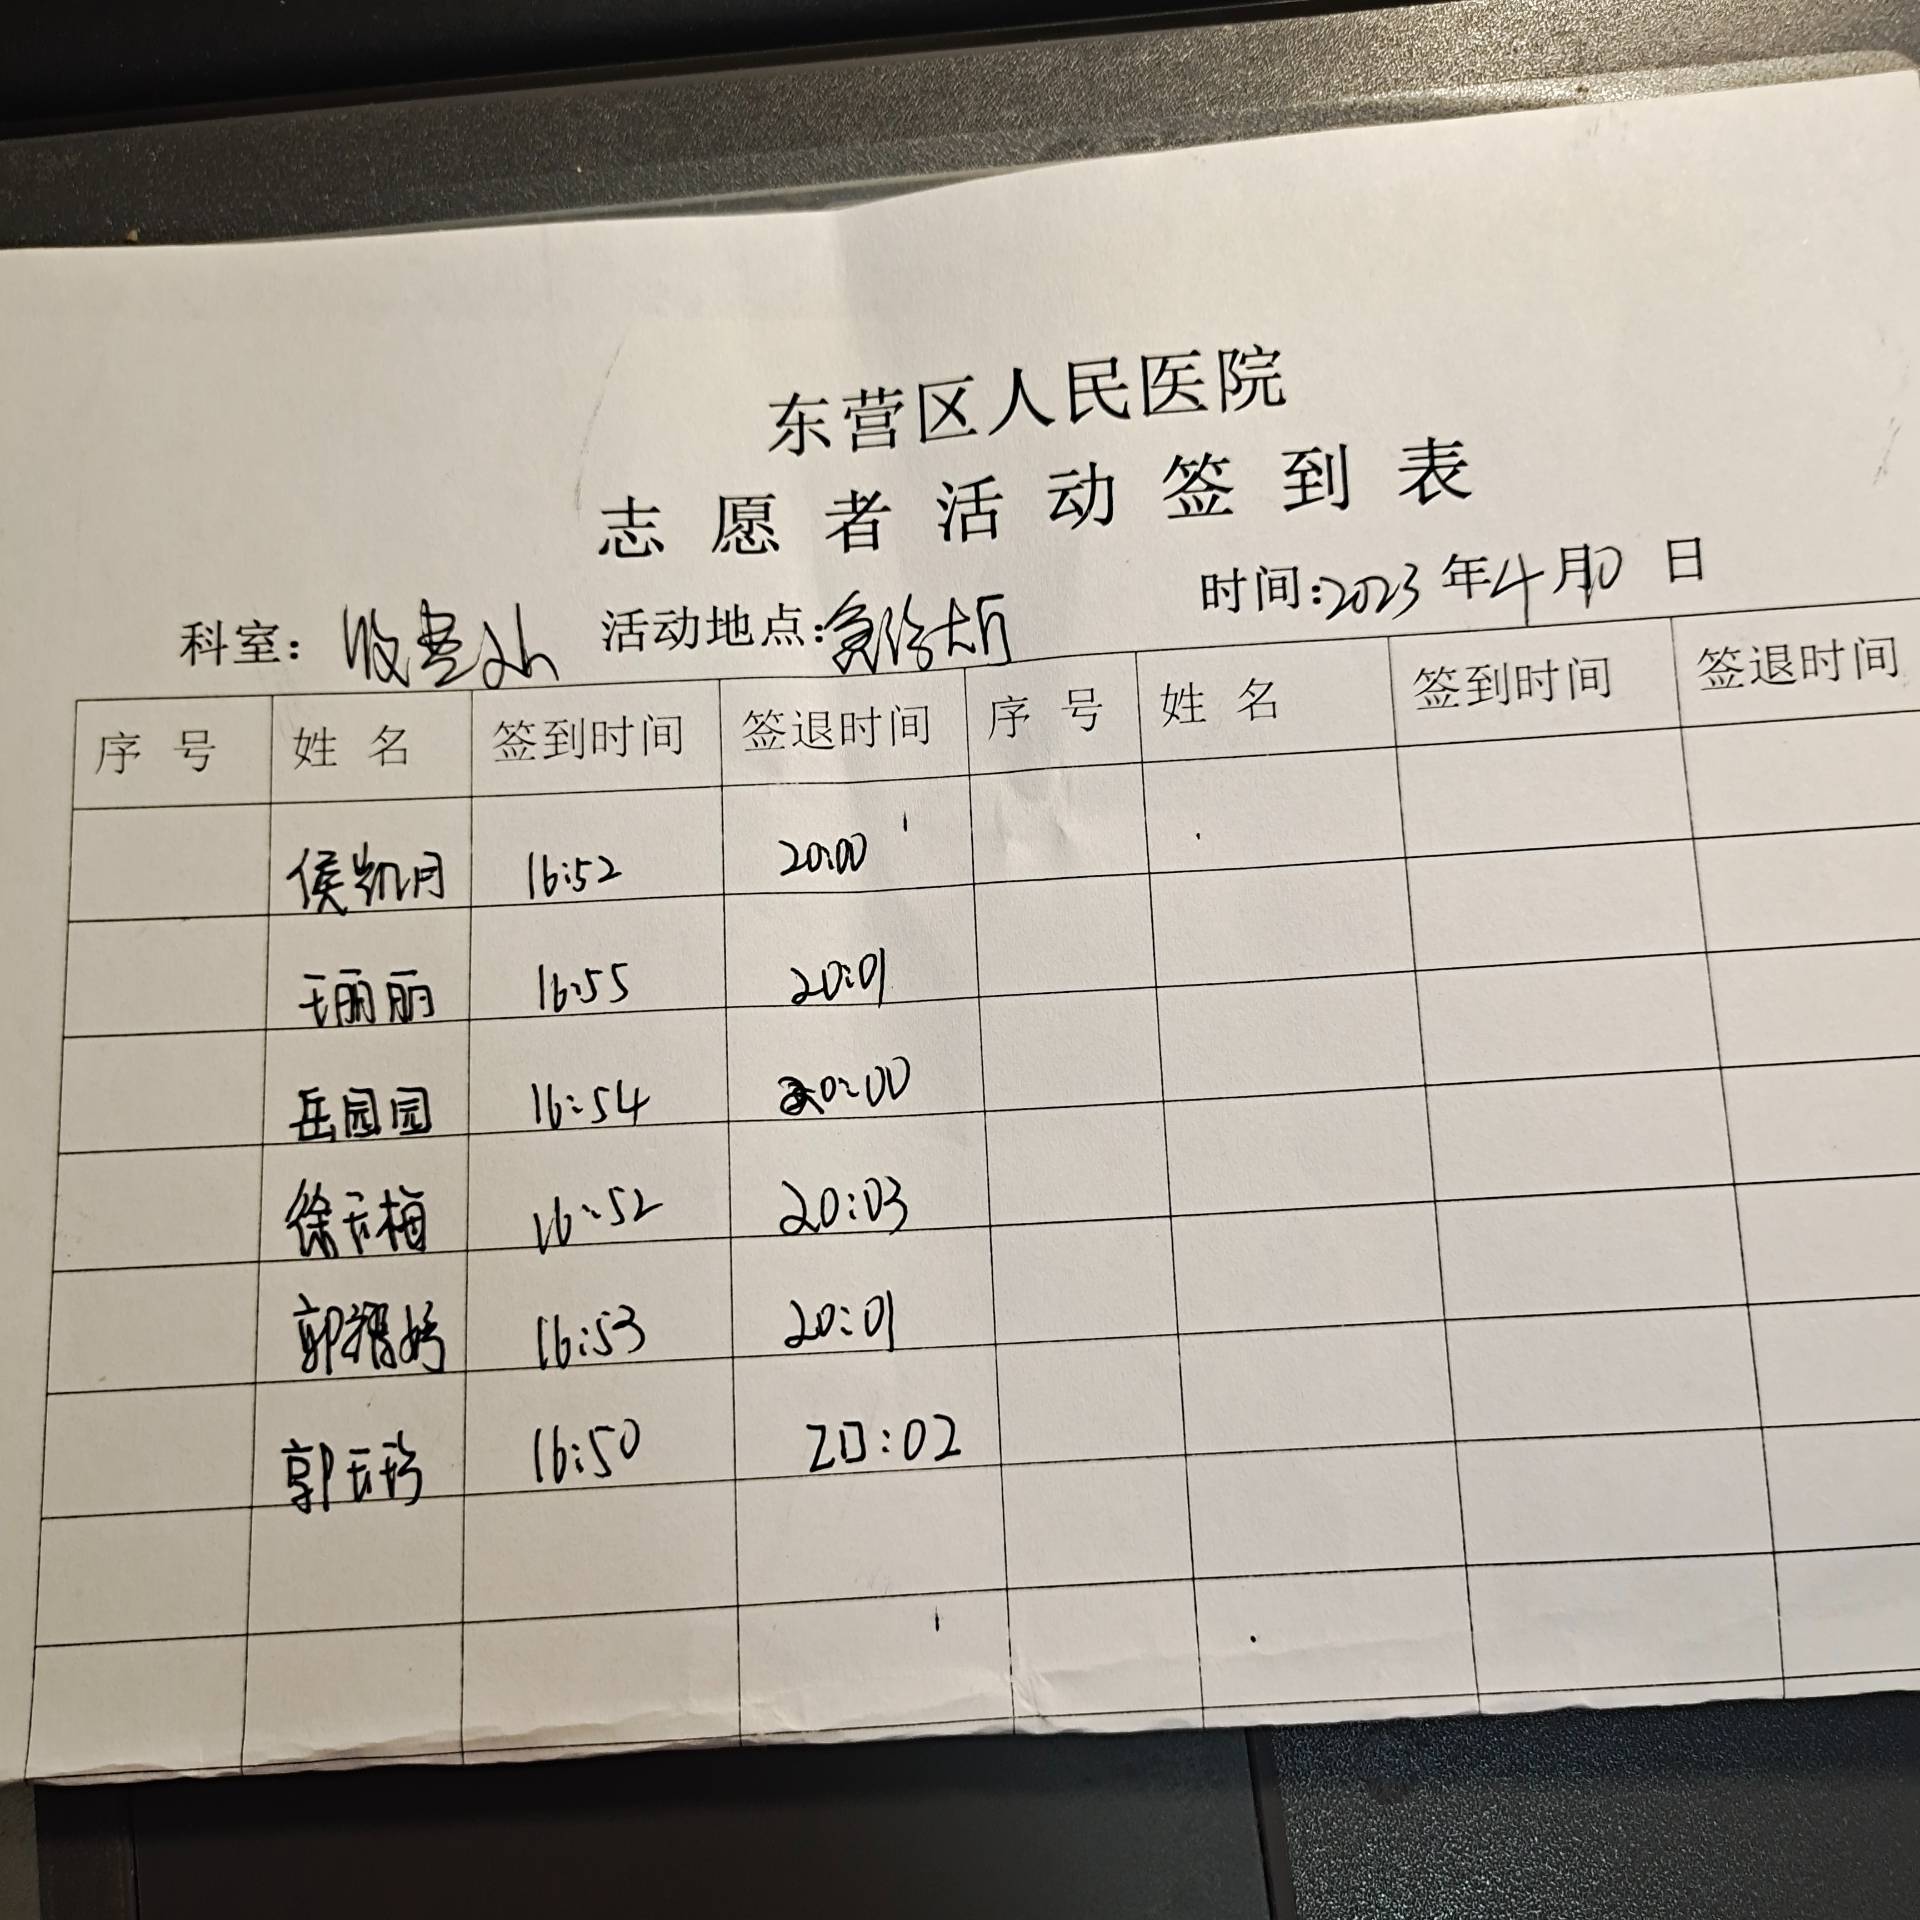 东营区人民医院
志愿者活动签到表
科室：收费处 活动地点：急诊大厅 时间：2023年4月10日
序号 姓名 签到时间 签退时间 序号 姓名 签到时间 签退时间
侯凯月 16:52 20:00
王丽丽 16:55 20:01
岳园园 16:54 20:00
徐玉梅 16:52 20:03
郭 16:53 20:01
郭玉珍 16:50 20:02